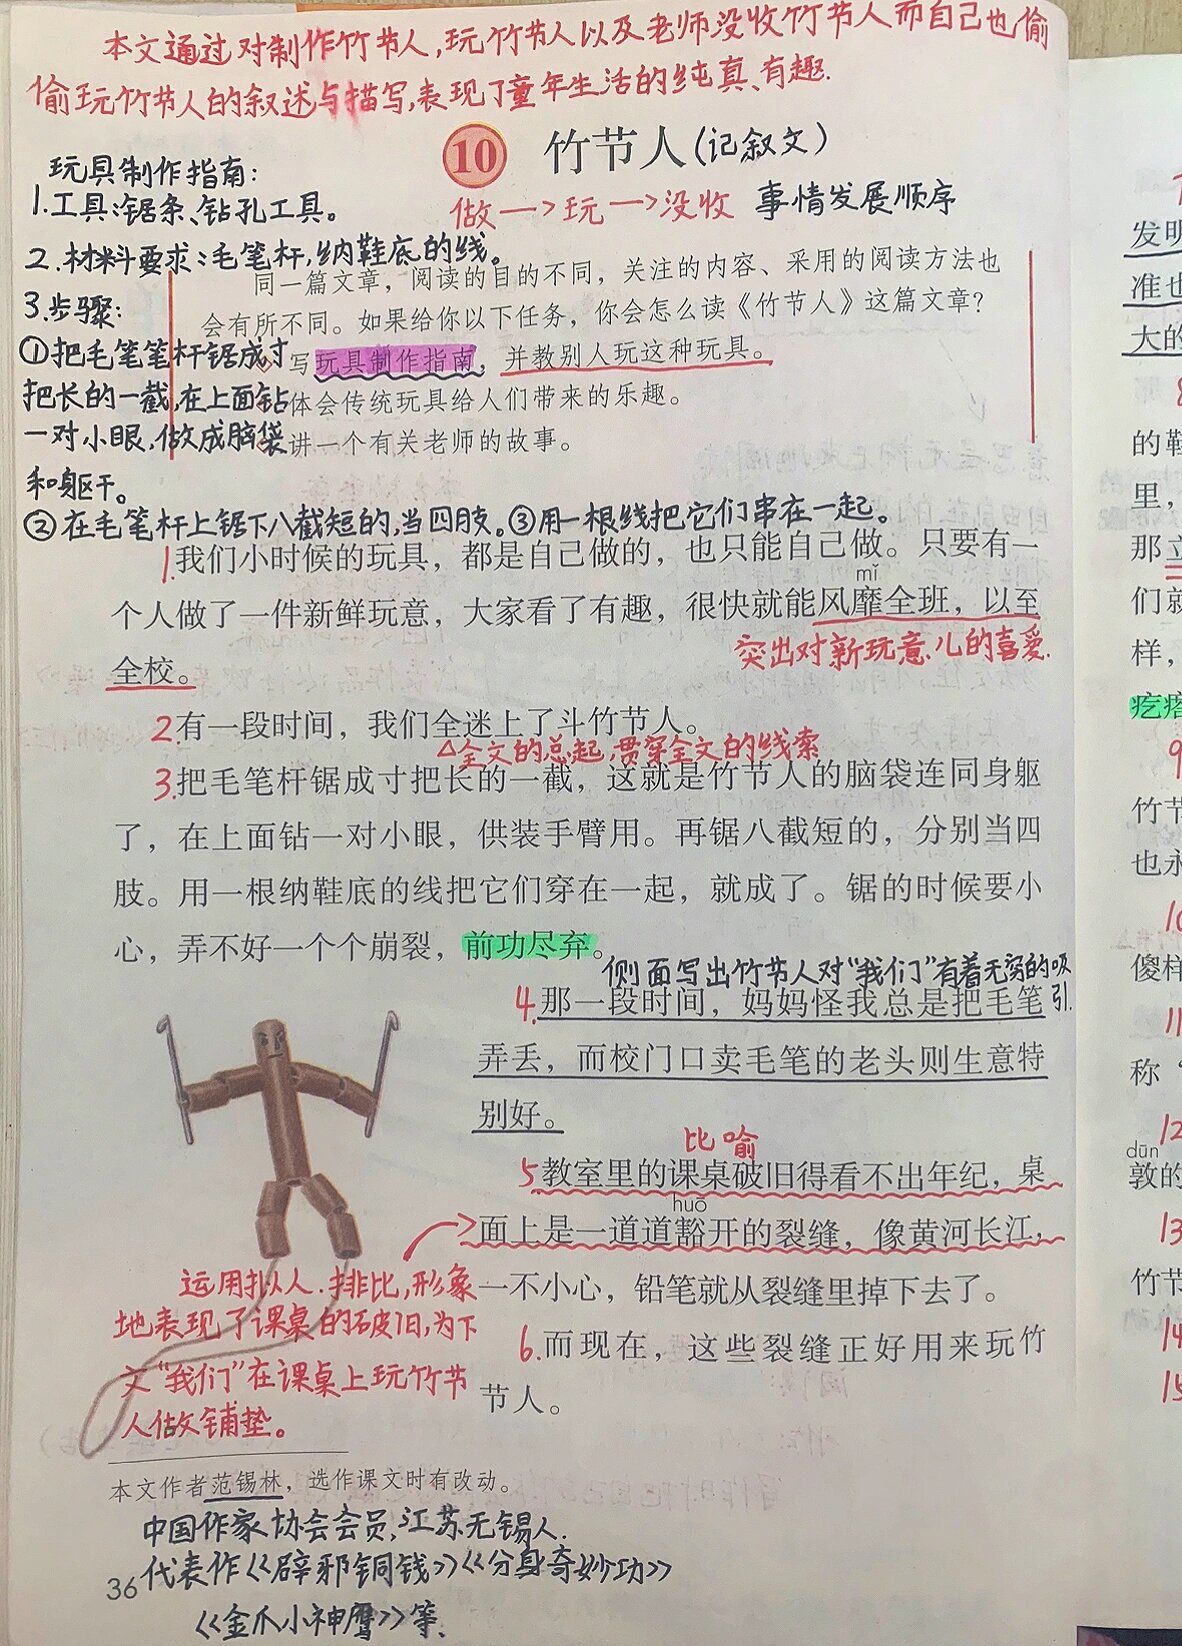 本文通过对制作竹节人,玩竹节人以及老师没收竹节人而自己也偷
偷玩竹节人的叙述与描写,表现了童年生活的纯真、有趣.
10 竹节人(记叙文)
做—>玩—>没收 事情发展顺序
玩具制作指南:
1.工具:锯条、钻孔工具。
2.材料要求:毛笔杆,纳鞋底的线。
3.步骤:
①把毛笔笔杆锯成寸
把长的一截,在上面钻
一对小眼,做成脑袋
和身躯干。
②在毛笔杆上锯下八截短的,当四肢。③用一根线把它们串在一起。
同一篇文章，阅读的目的不同，关注的内容、采用的阅读方法也
会有所不同。如果给你以下任务，你会怎么读《竹节人》这篇文章？
写玩具制作指南，并教别人玩这种玩具。
体会传统玩具给人们带来的乐趣。
讲一个有关老师的故事。
1.我们小时候的玩具，都是自己做的，也只能自己做。只要有一
mǐ
个人做了一件新鲜玩意，大家看了有趣，很快就能风靡全班，以至
全校。
突出对新玩意儿的喜爱.
2.有一段时间，我们全迷上了斗竹节人。
△全文的总起,贯穿全文的线索
3.把毛笔杆锯成寸把长的一截，这就是竹节人的脑袋连同身躯
了，在上面钻一对小眼，供装手臂用。再锯八截短的，分别当四
肢。用一根纳鞋底的线把它们穿在一起，就成了。锯的时候要小
心，弄不好一个个崩裂，前功尽弃。
侧面写出竹节人对“我们”有着无穷的吸
引.
4.那一段时间，妈妈怪我总是把毛笔
弄丢，而校门口卖毛笔的老头则生意特
别好。
比喻
5教室里的课桌破旧得看不出年纪，桌
huō
面上是一道道豁开的裂缝，像黄河长江，
一不小心，铅笔就从裂缝里掉下去了。
6.而现在，这些裂缝正好用来玩竹
节人。
运用拟人.排比,形象
地表现了课桌的破旧,为下
文“我们”在课桌上玩竹节
人做铺垫。
本文作者范锡林，选作课文时有改动。
中国作家协会会员,江苏无锡人.
36 代表作《辟邪铜钱》《分身奇妙功》
《金爪小神鹰》等.
发明
准也
大的
的鞋
里，
那立
们就
样，
疙瘩
9
竹节
也永
10
傻样
11
称“
12
dūn
敦的
13
竹节
14
15